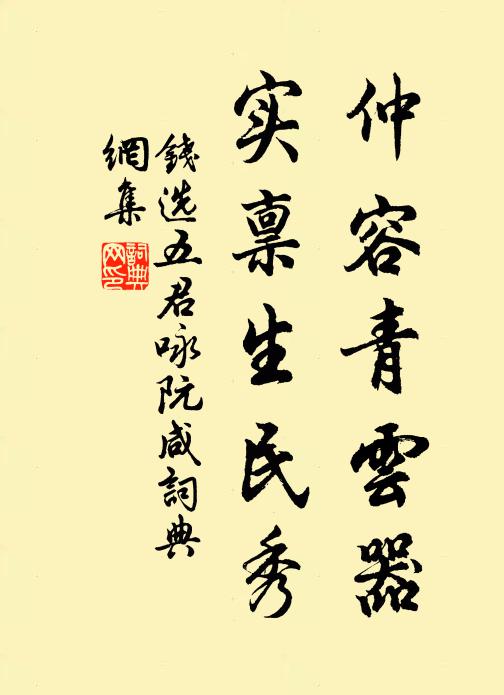 仲容青雲器
实禀生民秀
錢选五君咏阮咸詞典
網集
詞典
网印